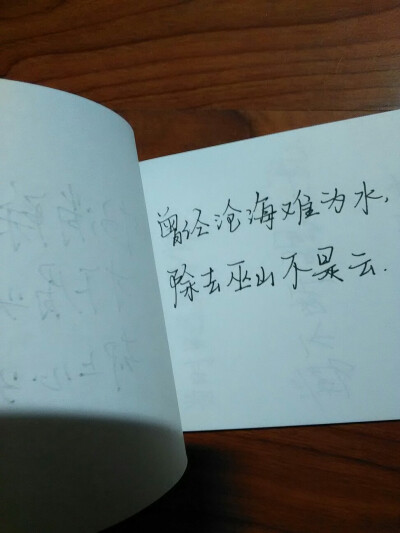 曾经沧海难为水,
除去巫山不是云.